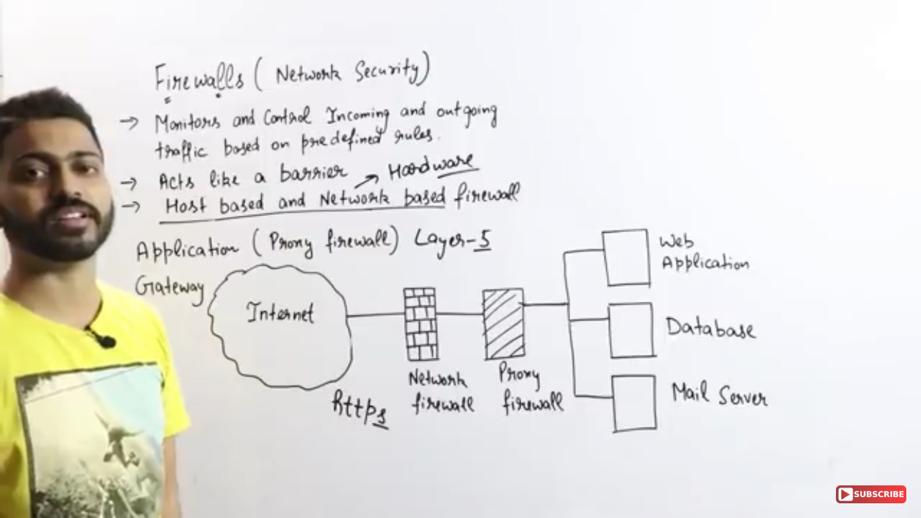 Firewalls ( Network Security)
→ Monitors and Control Incoming and outgoing
traffic based on predefined rules.
→ Acts like a barrier → Hardware
→ Host based and Network based firewall
Application ( Proxy firewall) Layer-5
Gateway
Internet
https
Network
firewall
Proxy
firewall
Web
Application
Database
Mail Server
SUBSCRIBE